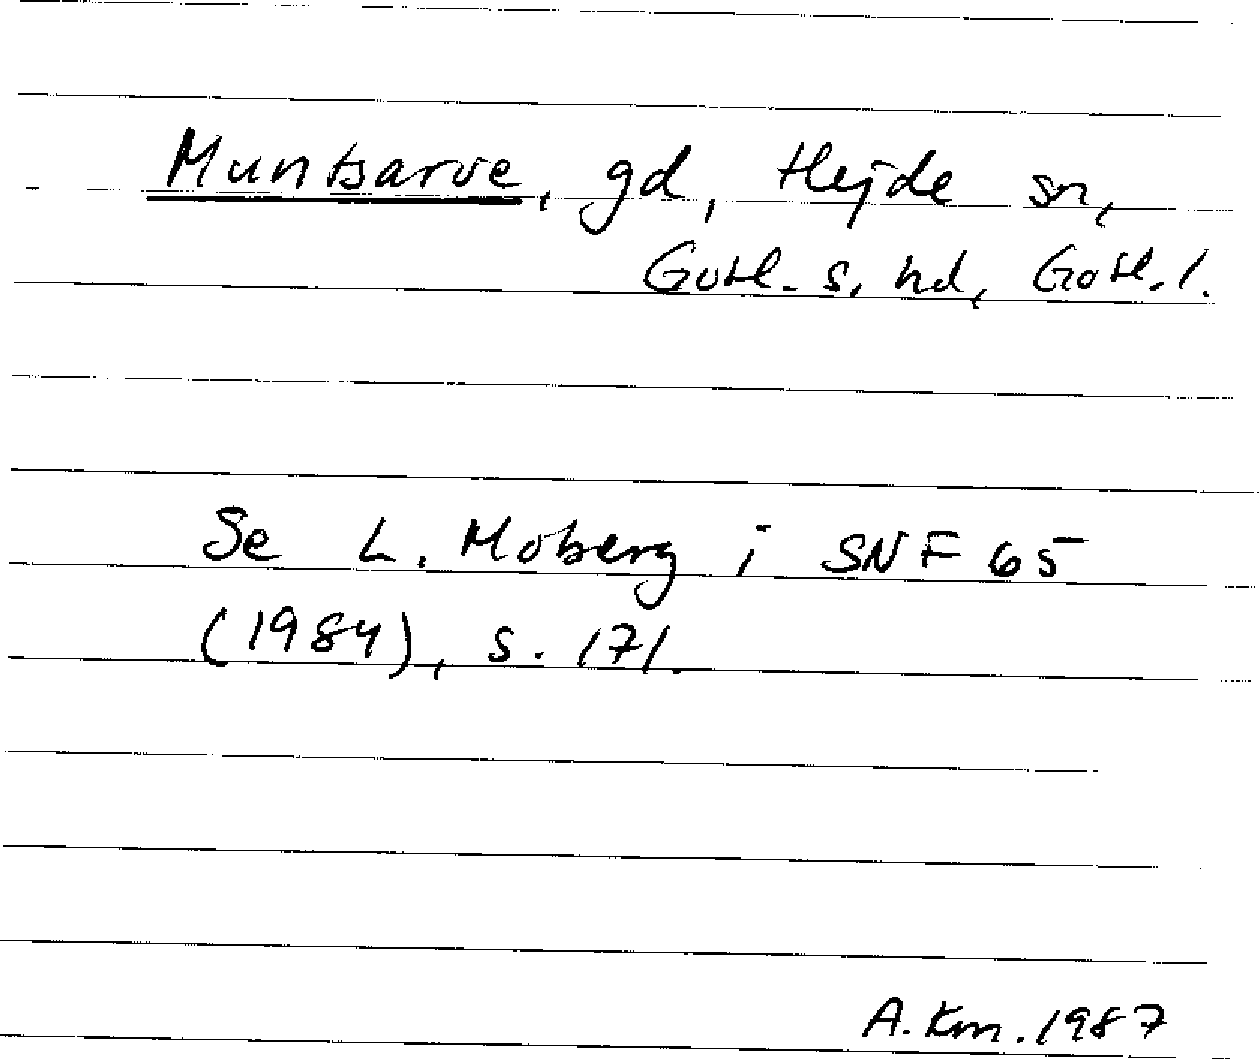 Muntsarve, gd, Hejde sn,
Gotl. s. hd, Gotl. l.
Se L. Moberg i SNF 65
(1984), s. 171.
A. Km. 1987